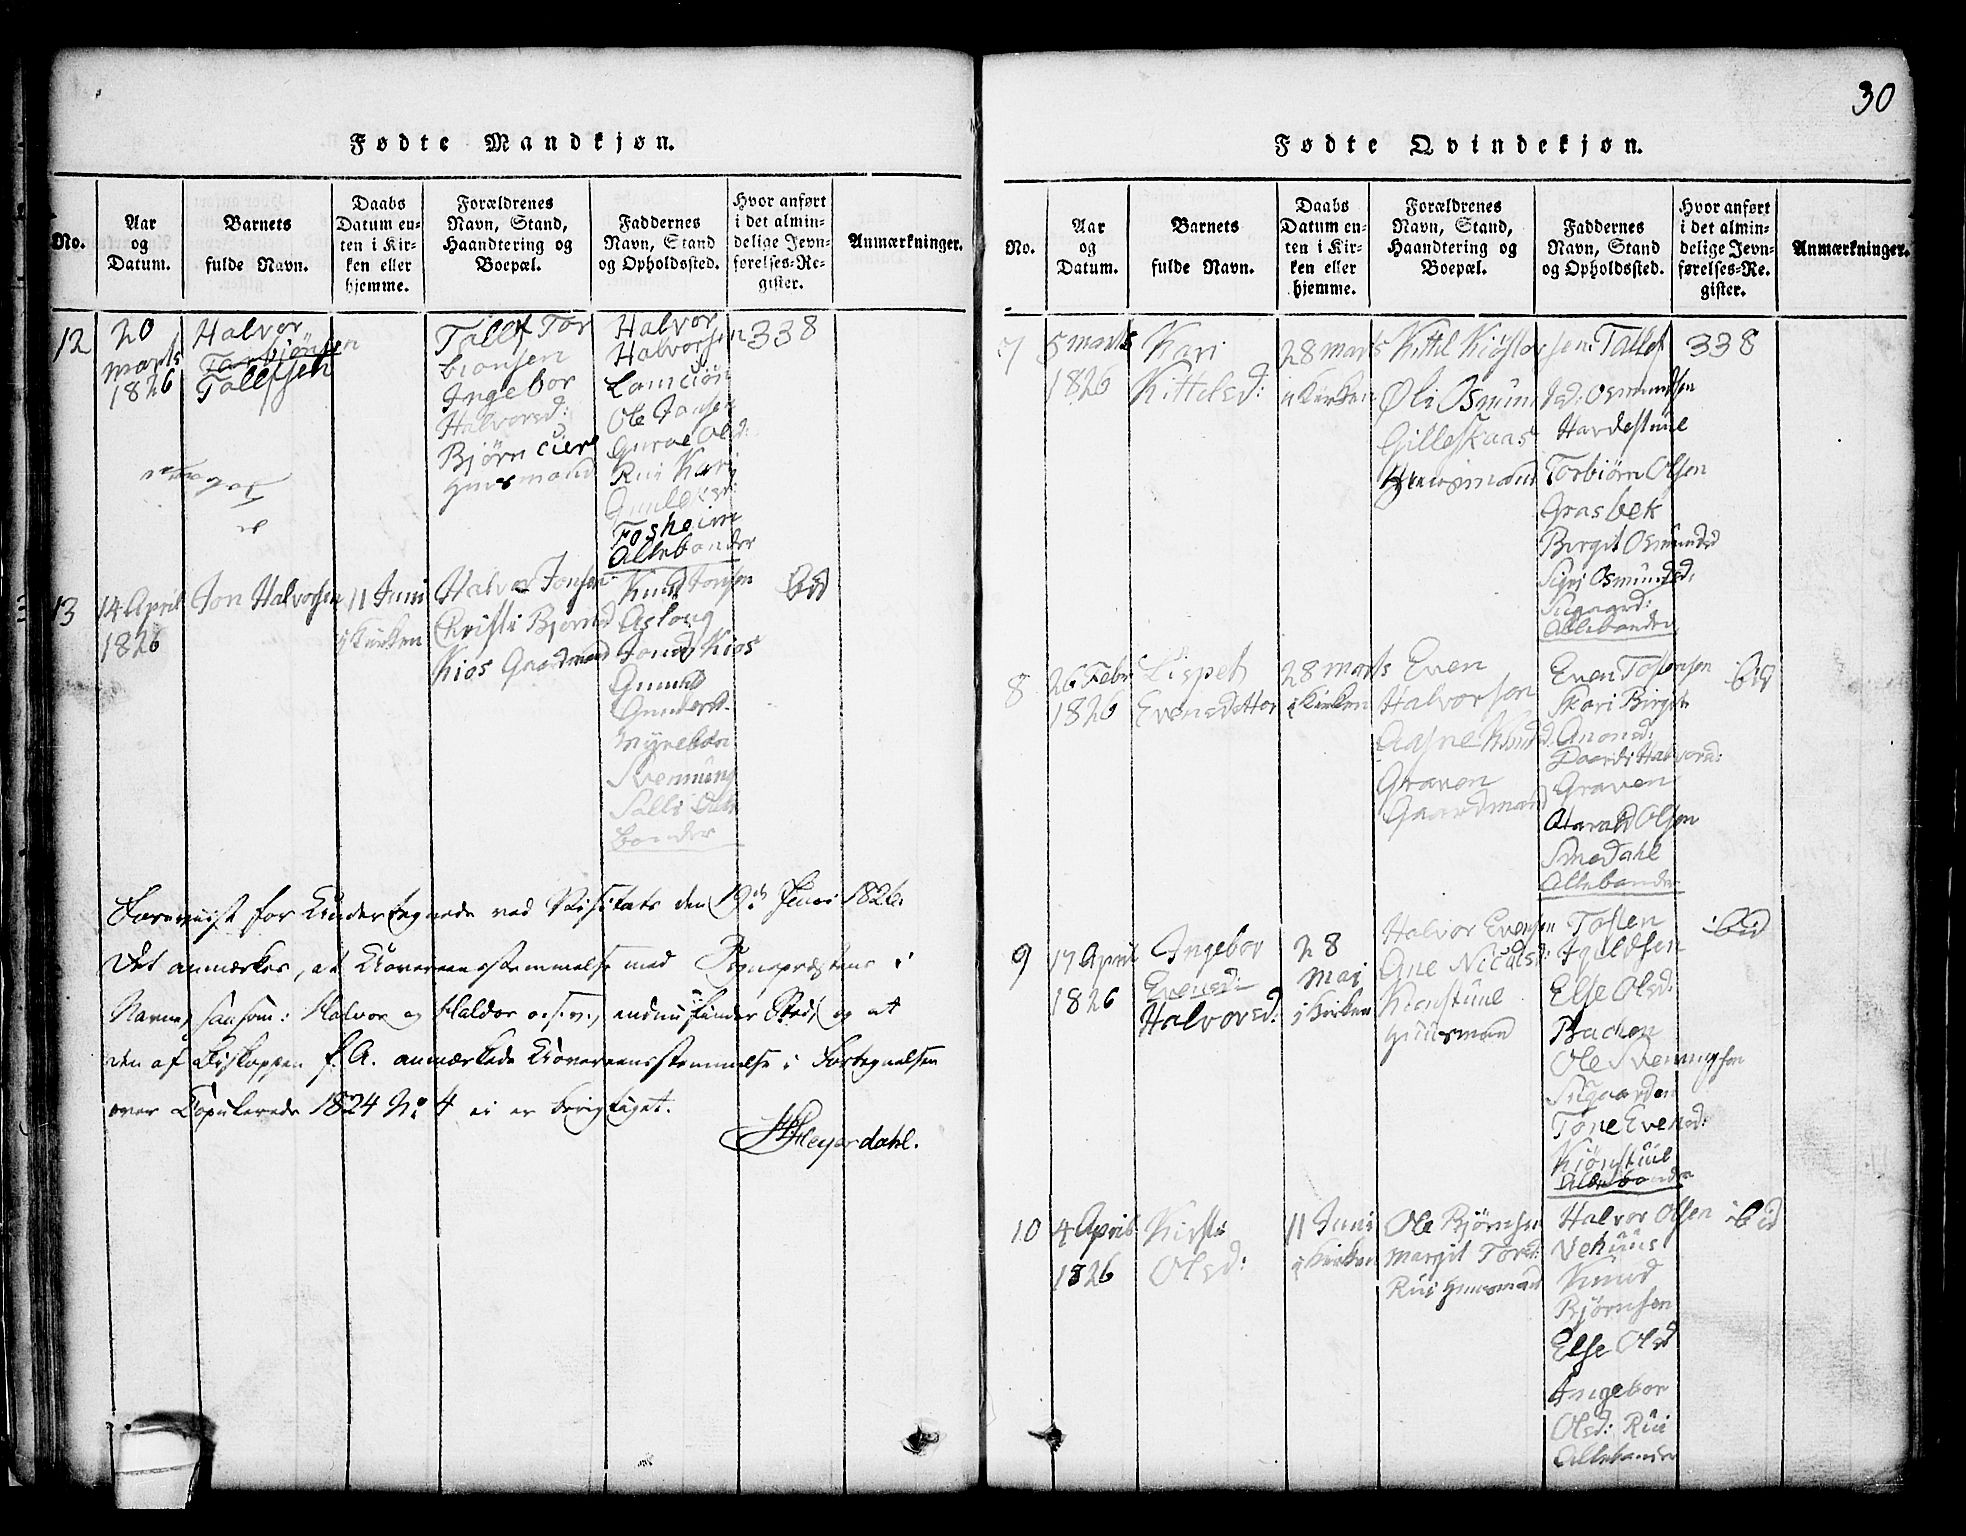 30
Fødte Mandkjøn.
No.
Aar
og
Datum.
Barnets
fulde Navn.
Daabs
Datum en-
ten i Kir-
ken eller
hjemme.
Forældrenes
Navn, Stand,
Haandtering og
Boepæl.
Faddernes
Navn, Stand
og Opholdssted.
Hvor anført
i det almin-
delige Jevn-
førelses-Re-
gister.
Anmærkninger.
12
20
marts
1826
Halvor
Torbjönsen
Tallefsen
Tallf Tor
bionsen
Ingebor
Halvorsd:
Bjørn
Huusmand
Halvor
Halvorsen
Ole Jonsen
Guroe Olsd:
Rui Kari
Fosheim
Allebonder
338
13
14 April
1826
Jon Halvorsen
11 Juni
i Kirken
Halvor Jonsen
Christi Bjornsd
Kios Gaardmand
Knud Jonsen
Asloug
Jonsd Kios
Gunild
Gundersd.
Svennung
Bonder
ibid
Foreviist for Undertegnede ved Visitats den 19de Juni 1826.
Det anmærkes, at Uovereensstemmelse med Sognepræstens i
Navne, saasom: Halvor og Haldor o.s.v., endnu finder Sted, og at
den af Biskoppen f. A. anmærkede Uovereensstemmelse i Fortegnelsen
over Copulerede 1824 No 4 ei er berigtiget.
Heyerdahl.
Fødte Qvindekjøn.
No.
Aar
og
Datum.
Barnets
fulde Navn.
Daabs
Datum en-
ten i Kir-
ken eller
hjemme.
Forældrenes
Navn, Stand,
Haandtering og
Boepæl.
Faddernes
Navn, Stand
og Opholdssted.
Hvor anført
i det almin-
delige Jevn-
førelses-Re-
gister.
Anmærkninger.
7
5 marts
1826
Kari
Kittelsd:
28 marts
i Kirken
Kittil Kiöstolsen
Öli Osmunsd:
Gilleskaas
Huusmand
Tallef
Osmundsen
Hardestuul
Torbiørn Olsen
Grasbek
Birgit Osmundsd
Sigri Osmundsd:
Allebonder
338
8
26 Febr
1826
Lispet
Evensdatter
28 marts
i Kirken
Even
Halvorson
Aasne Knudsd.
Graven
Gaardmand
Even Tostensen
Skori Birgit
Anonsd:
Halvorsd:
Graven
Harald Olsen
Smedahl
Allebonder
ibid
9
17 April
1826
Ingebor
Evensd:
Halvorsd:
28
Maj
i Kirken
Halvor Evensen
Ane Niculsd:
Kionstuul
Huusmand
Tosten
Else Olsd:
Bachen
Ole Svenningsen
Sigaarden
Tone Evensd:
Kiönstuul
Allebonder
ibid
10
4 April
1826
Kirsti
Olsd:
11 Juni
i Kirken
Ole Bjørnsen
Margit Torsd:
Rui Huusmand
Halvor Olsen
Vehuus
Knud
Bjørnsen
Else Olsd
Ingebor
Olsd: Rui
Allebonder
ibid